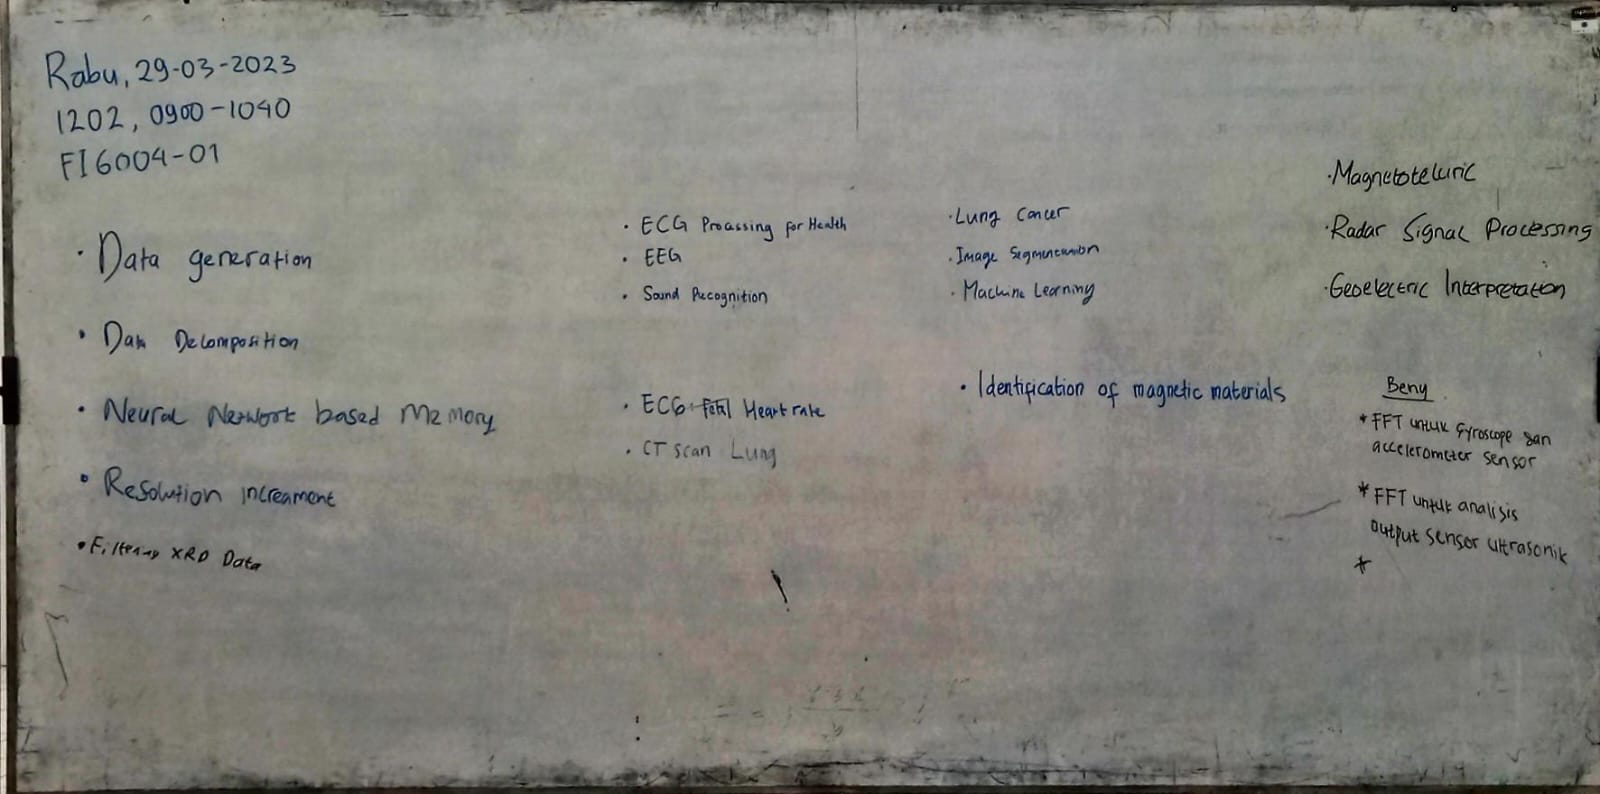 Rabu, 29-03-2023
1202, 0900-1040
FI6004-01
· Data generation
· Data Decomposition
· Neural Network based Memory
· Resolution increament
· Filtering XRD Data
· ECG Processing for Health
· EEG
· Sound Recognition
· ECG Fetal Heart rate
· CT scan Lung
· Lung Cancer
· Image Segmentation
· Machine Learning
· Identification of magnetic materials
· Magnetotelluric
· Radar Signal Processing
· Geoelectric Interpretation
Beny
* FFT untuk gyroscope dan
accelerometer sensor
* FFT untuk analisis
output sensor ultrasonik
*